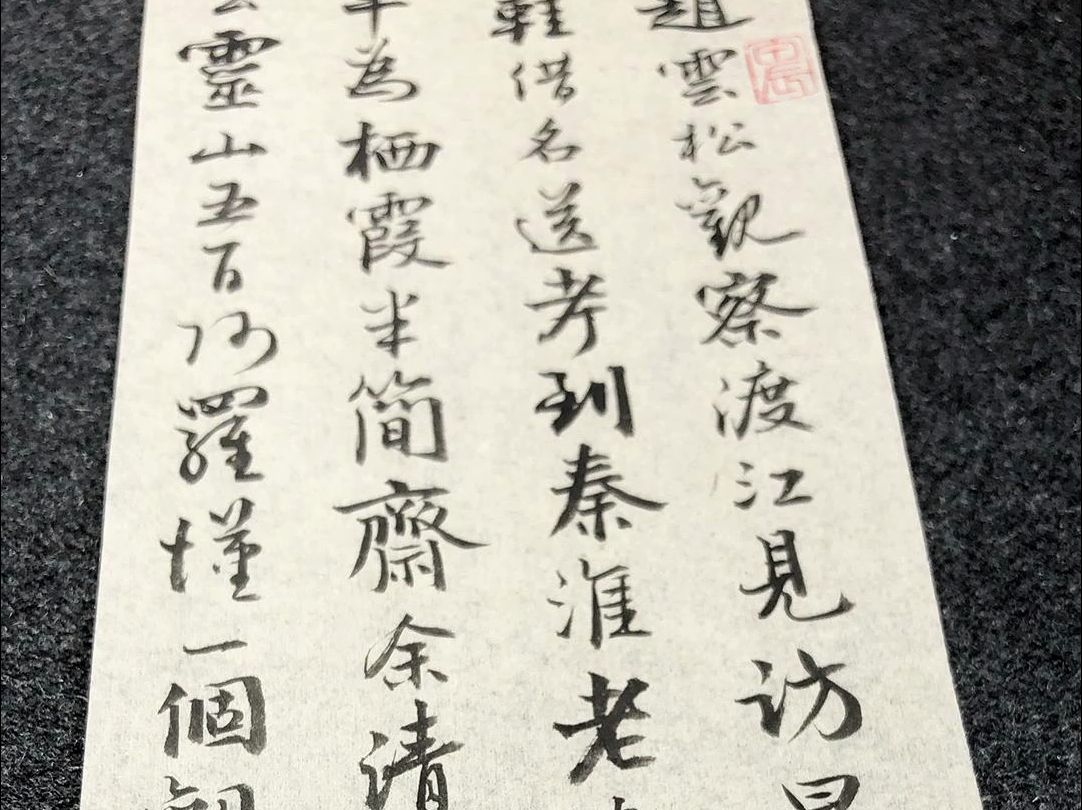 趙雲松觀察渡江見訪
鞋借名送考到秦淮老
半為栖霞半簡齋余請
云靈山五百阿羅漢一個觀